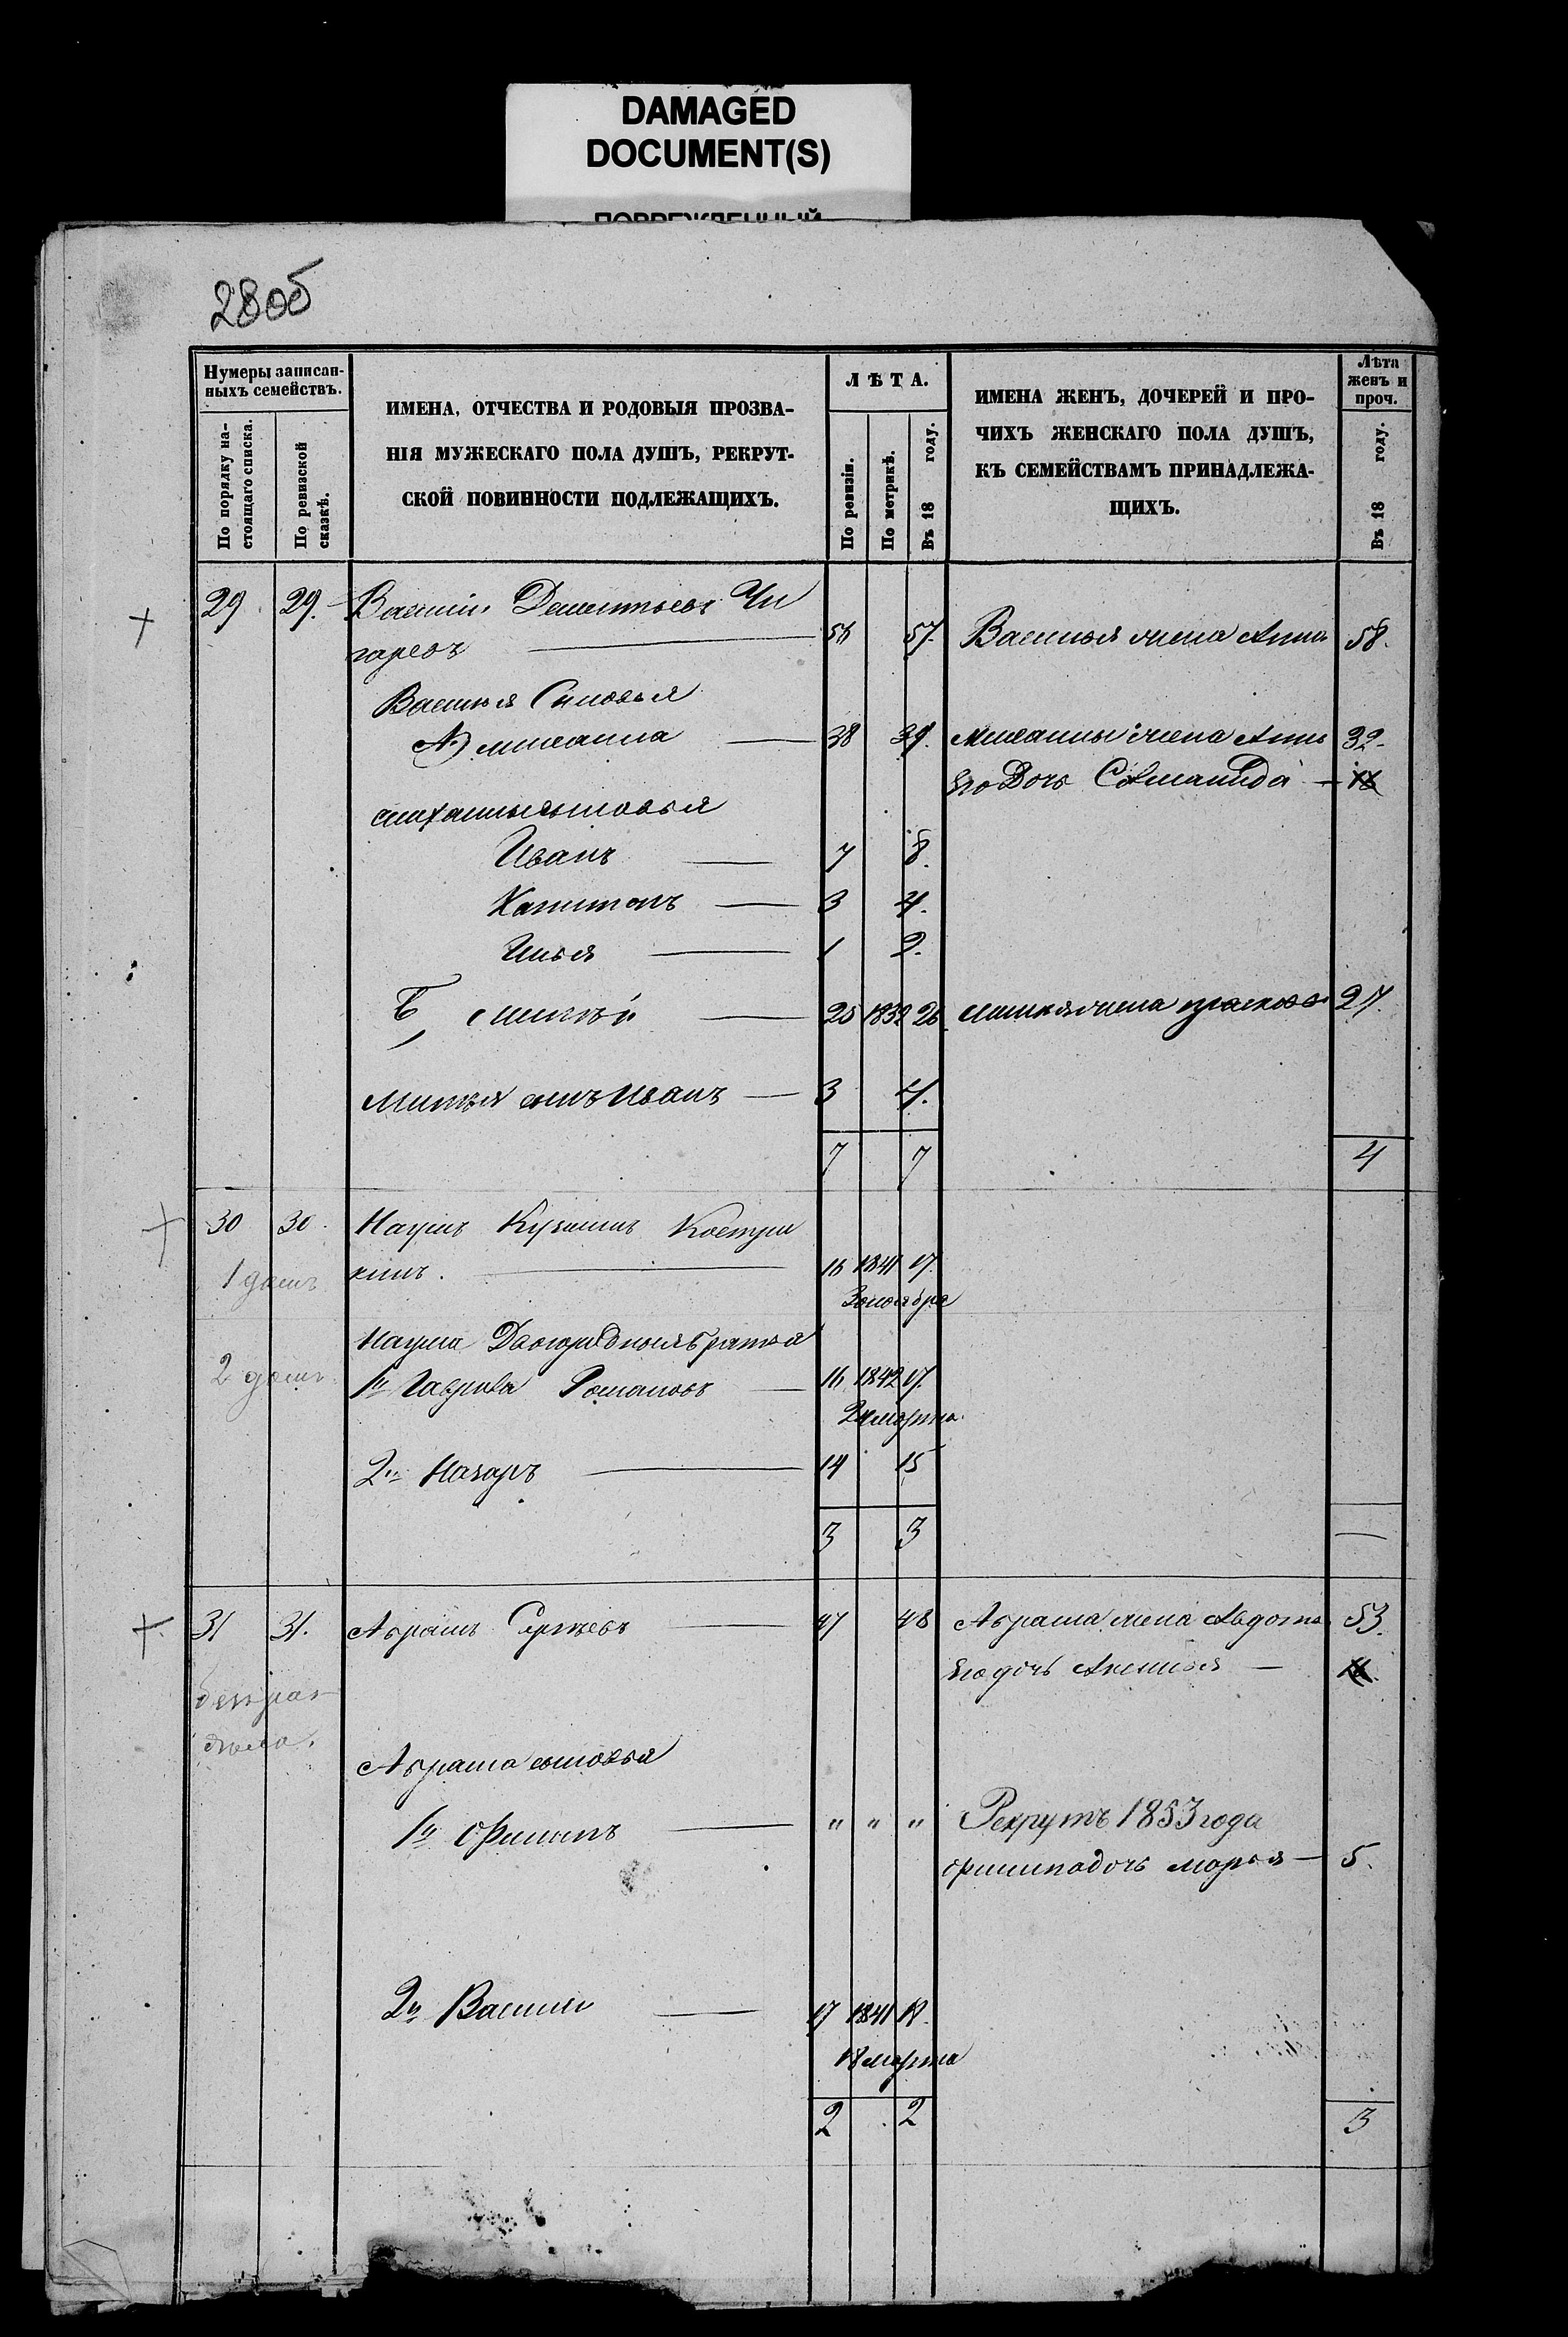 DAMAGED
DOCUMENT(S)
ПОВРЕЖДЕННЫЙ
28об
Нумеры записан-
ныхъ семействъ.
По порядку на-
стоящаго списка.
По ревизской
сказкѣ.
ИМЕНА, ОТЧЕСТВА И РОДОВЫЯ ПРОЗВА-
НІЯ МУЖЕСКАГО ПОЛА ДУШЪ, РЕКРУТ-
СКОЙ ПОВИННОСТИ ПОДЛЕЖАЩИХЪ.
ЛѢТА.
По ревизіи.
По метрикѣ.
Въ 18 году.
ИМЕНА ЖЕНЪ, ДОЧЕРЕЙ И ПРО-
ЧИХЪ ЖЕНСКАГО ПОЛА ДУШЪ,
КЪ СЕМЕЙСТВАМЪ ПРИНАДЛЕЖА-
ЩИХЪ.
Лѣта
женъ и
проч.
Въ 18 году.
29 29. Василій Дементьевъ Чи
гаревъ 56 57. Василья жена Анна 58.
Василья Сыновья
А) михаила 38 39. михаилы жена Анна 32.
Его Дочь
михаилы сыновья
Иванъ 7 8.
Капитонъ 3 4.
Илья 1 2.
Б, 25 1832 26 жена 27.
сынъ Иванъ 3 4.
7 7 4
30 30. Наумъ Кузминъ Костуш
кинъ. 16 1841 17.
1 домъ
ноября
Наума Двоюродныя братья
2 домъ 1й Гаврила Романовъ 16 1842 17.
24 марта
2й Назаръ 14 15
3 3
31 31. Абрамъ Сергѣевъ 47 48 Абрама жена Авдотья 53.
Его дочь Аксинья
безъ раз
дѣла.
Абрама сыновья
1й Филипъ " " " Рекрутъ 1853 года
филипа дочь марья 5.
2й Василій 17 1841 18.
18 марта
2 2 3